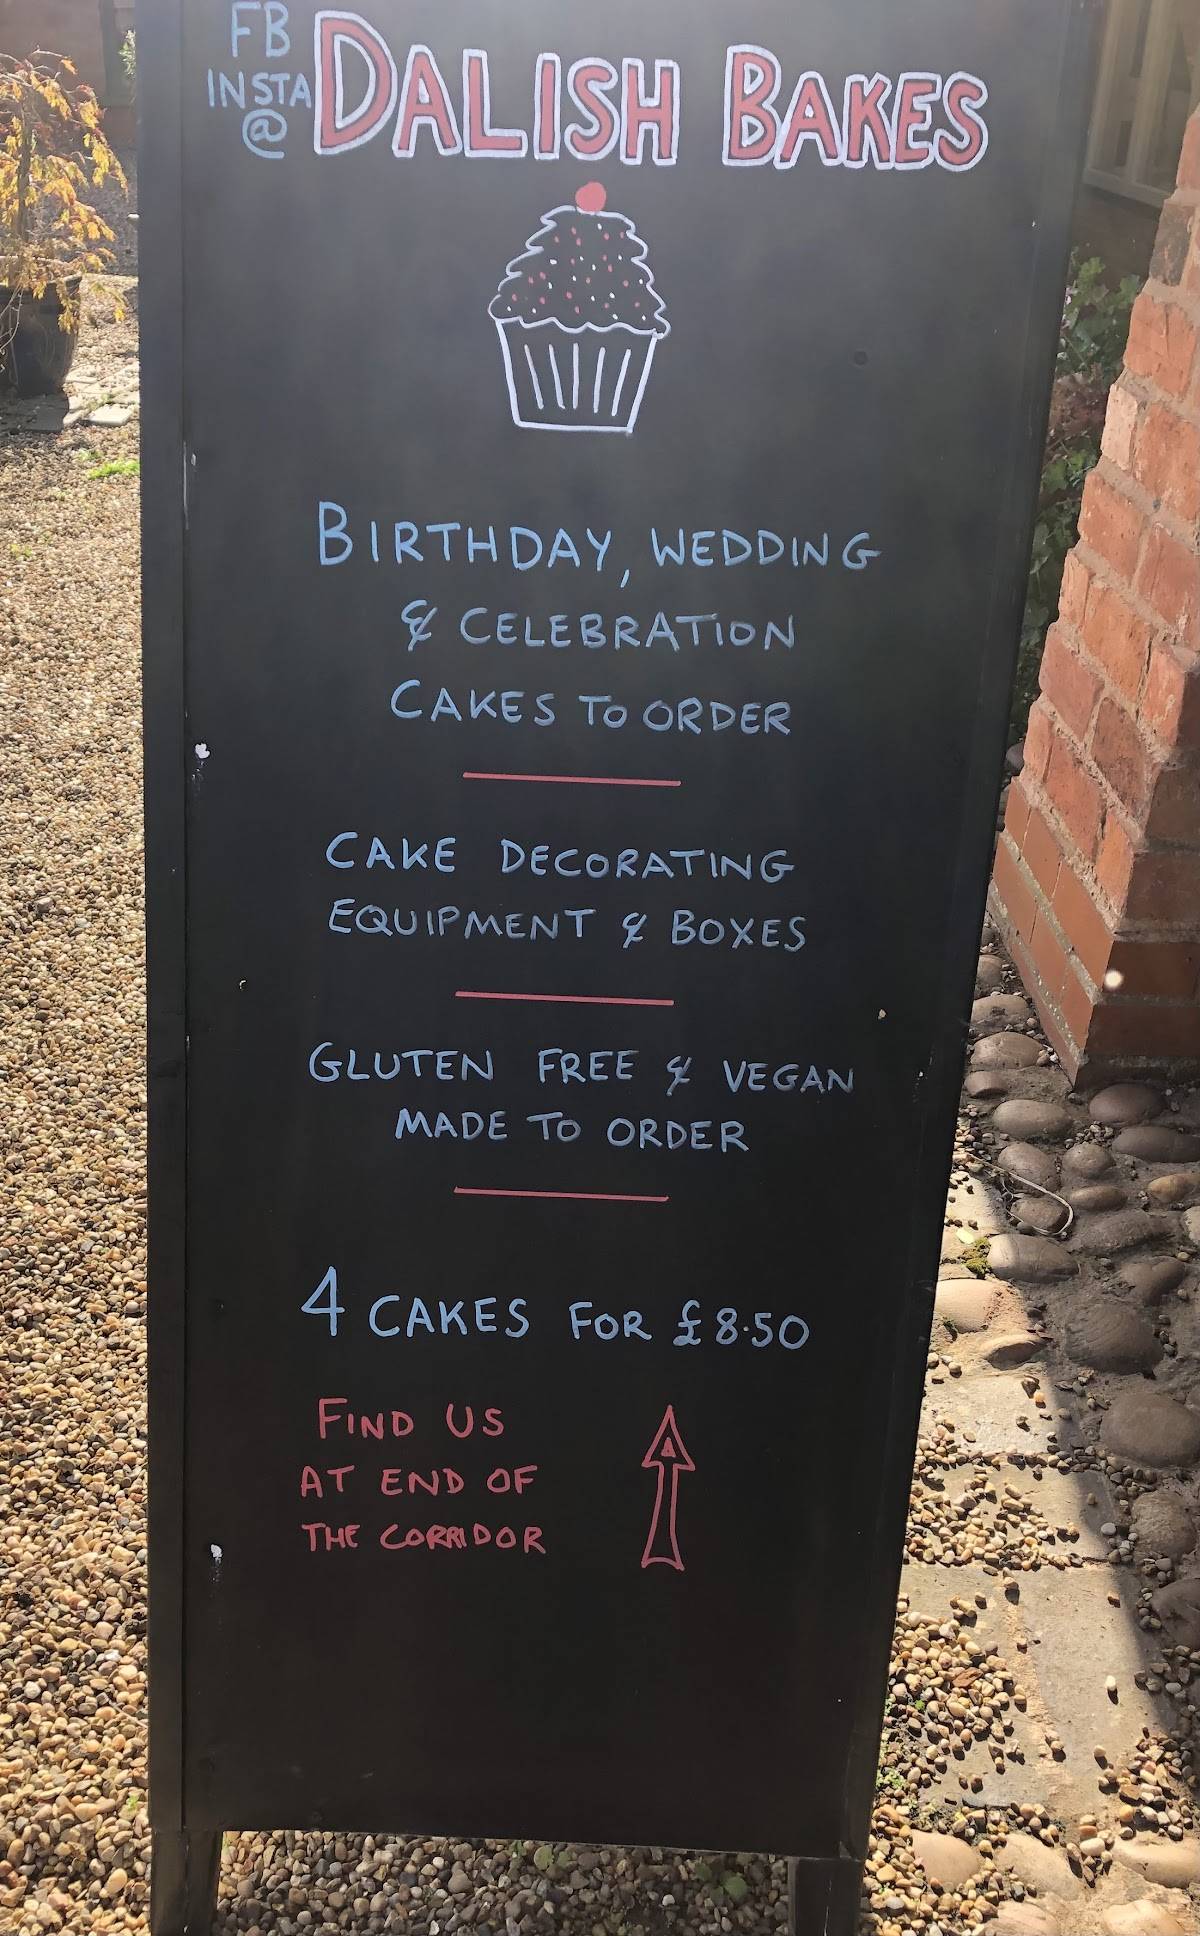 FB
INSTA
@
DALISH BAKES
BIRTHDAY, WEDDING
& CELEBRATION
CAKES TO ORDER
CAKE DECORATING
EQUIPMENT & BOXES
GLUTEN FREE & VEGAN
MADE TO ORDER
4 CAKES FOR £8.50
FIND US
AT END OF
THE CORRIDOR